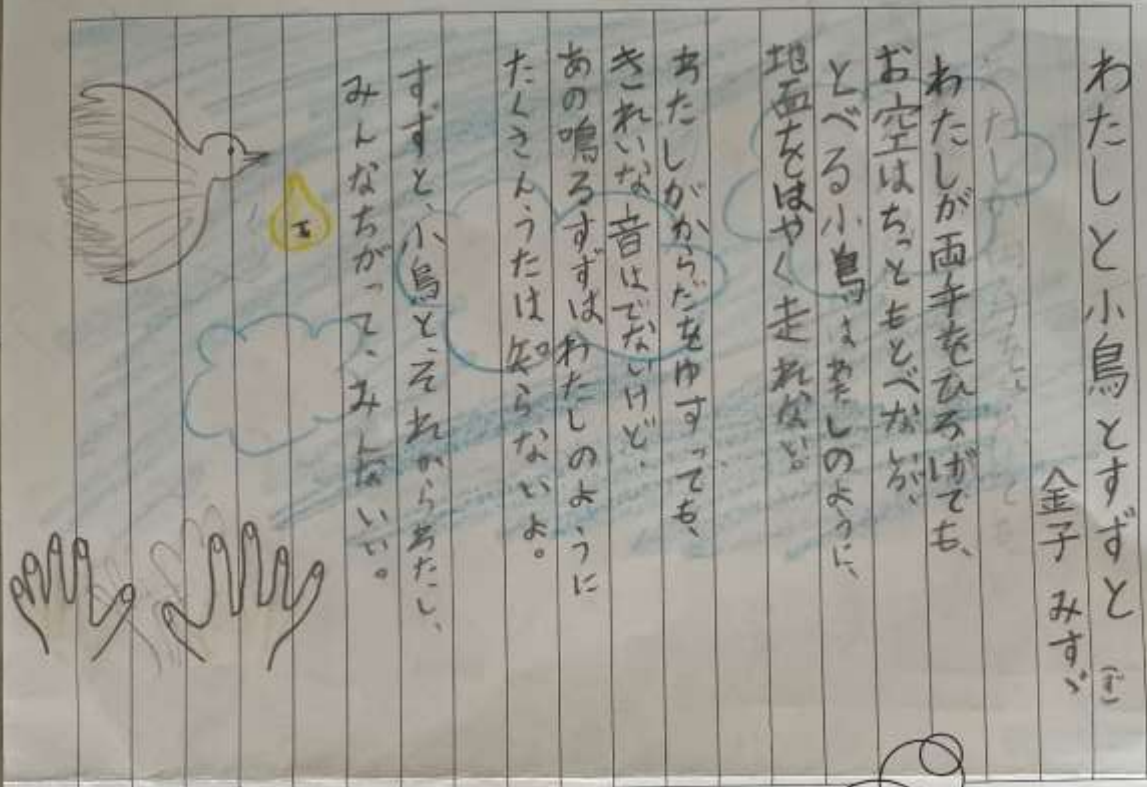 わたしと小鳥とすずと
(ず)
金子 みすゞ
わたしが両手をひろげても、
お空はちっともとべないが、
とべる小鳥はわたしのように、
地面をはやく走れない。
わたしがからだをゆすっても、
きれいな音はでないけど、
あの鳴るすずはわたしのように
たくさん、うたは知らないよ。
すずと、小鳥と、それからわたし、
みんなちがって、みんないい。